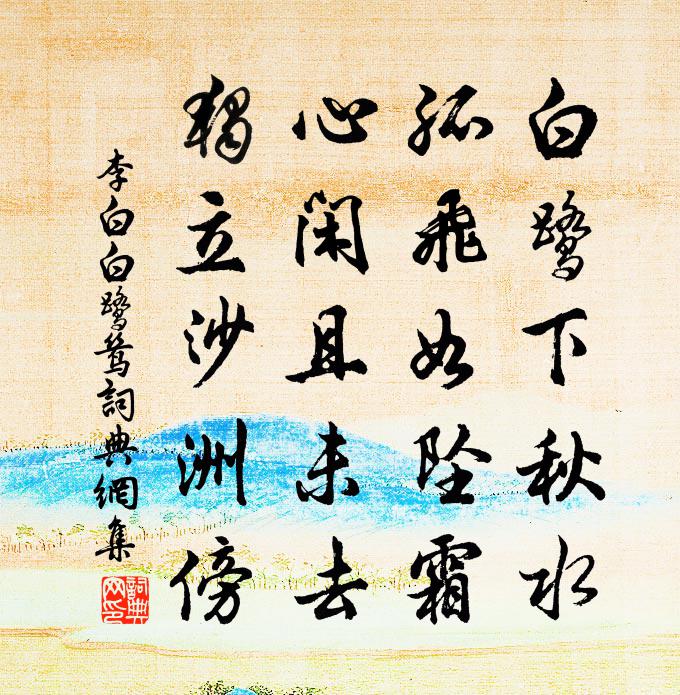 白鹭下秋水
孤飞如坠霜
心闲且未去
独立沙洲傍
李白白鹭鸶詞典網集
詞典